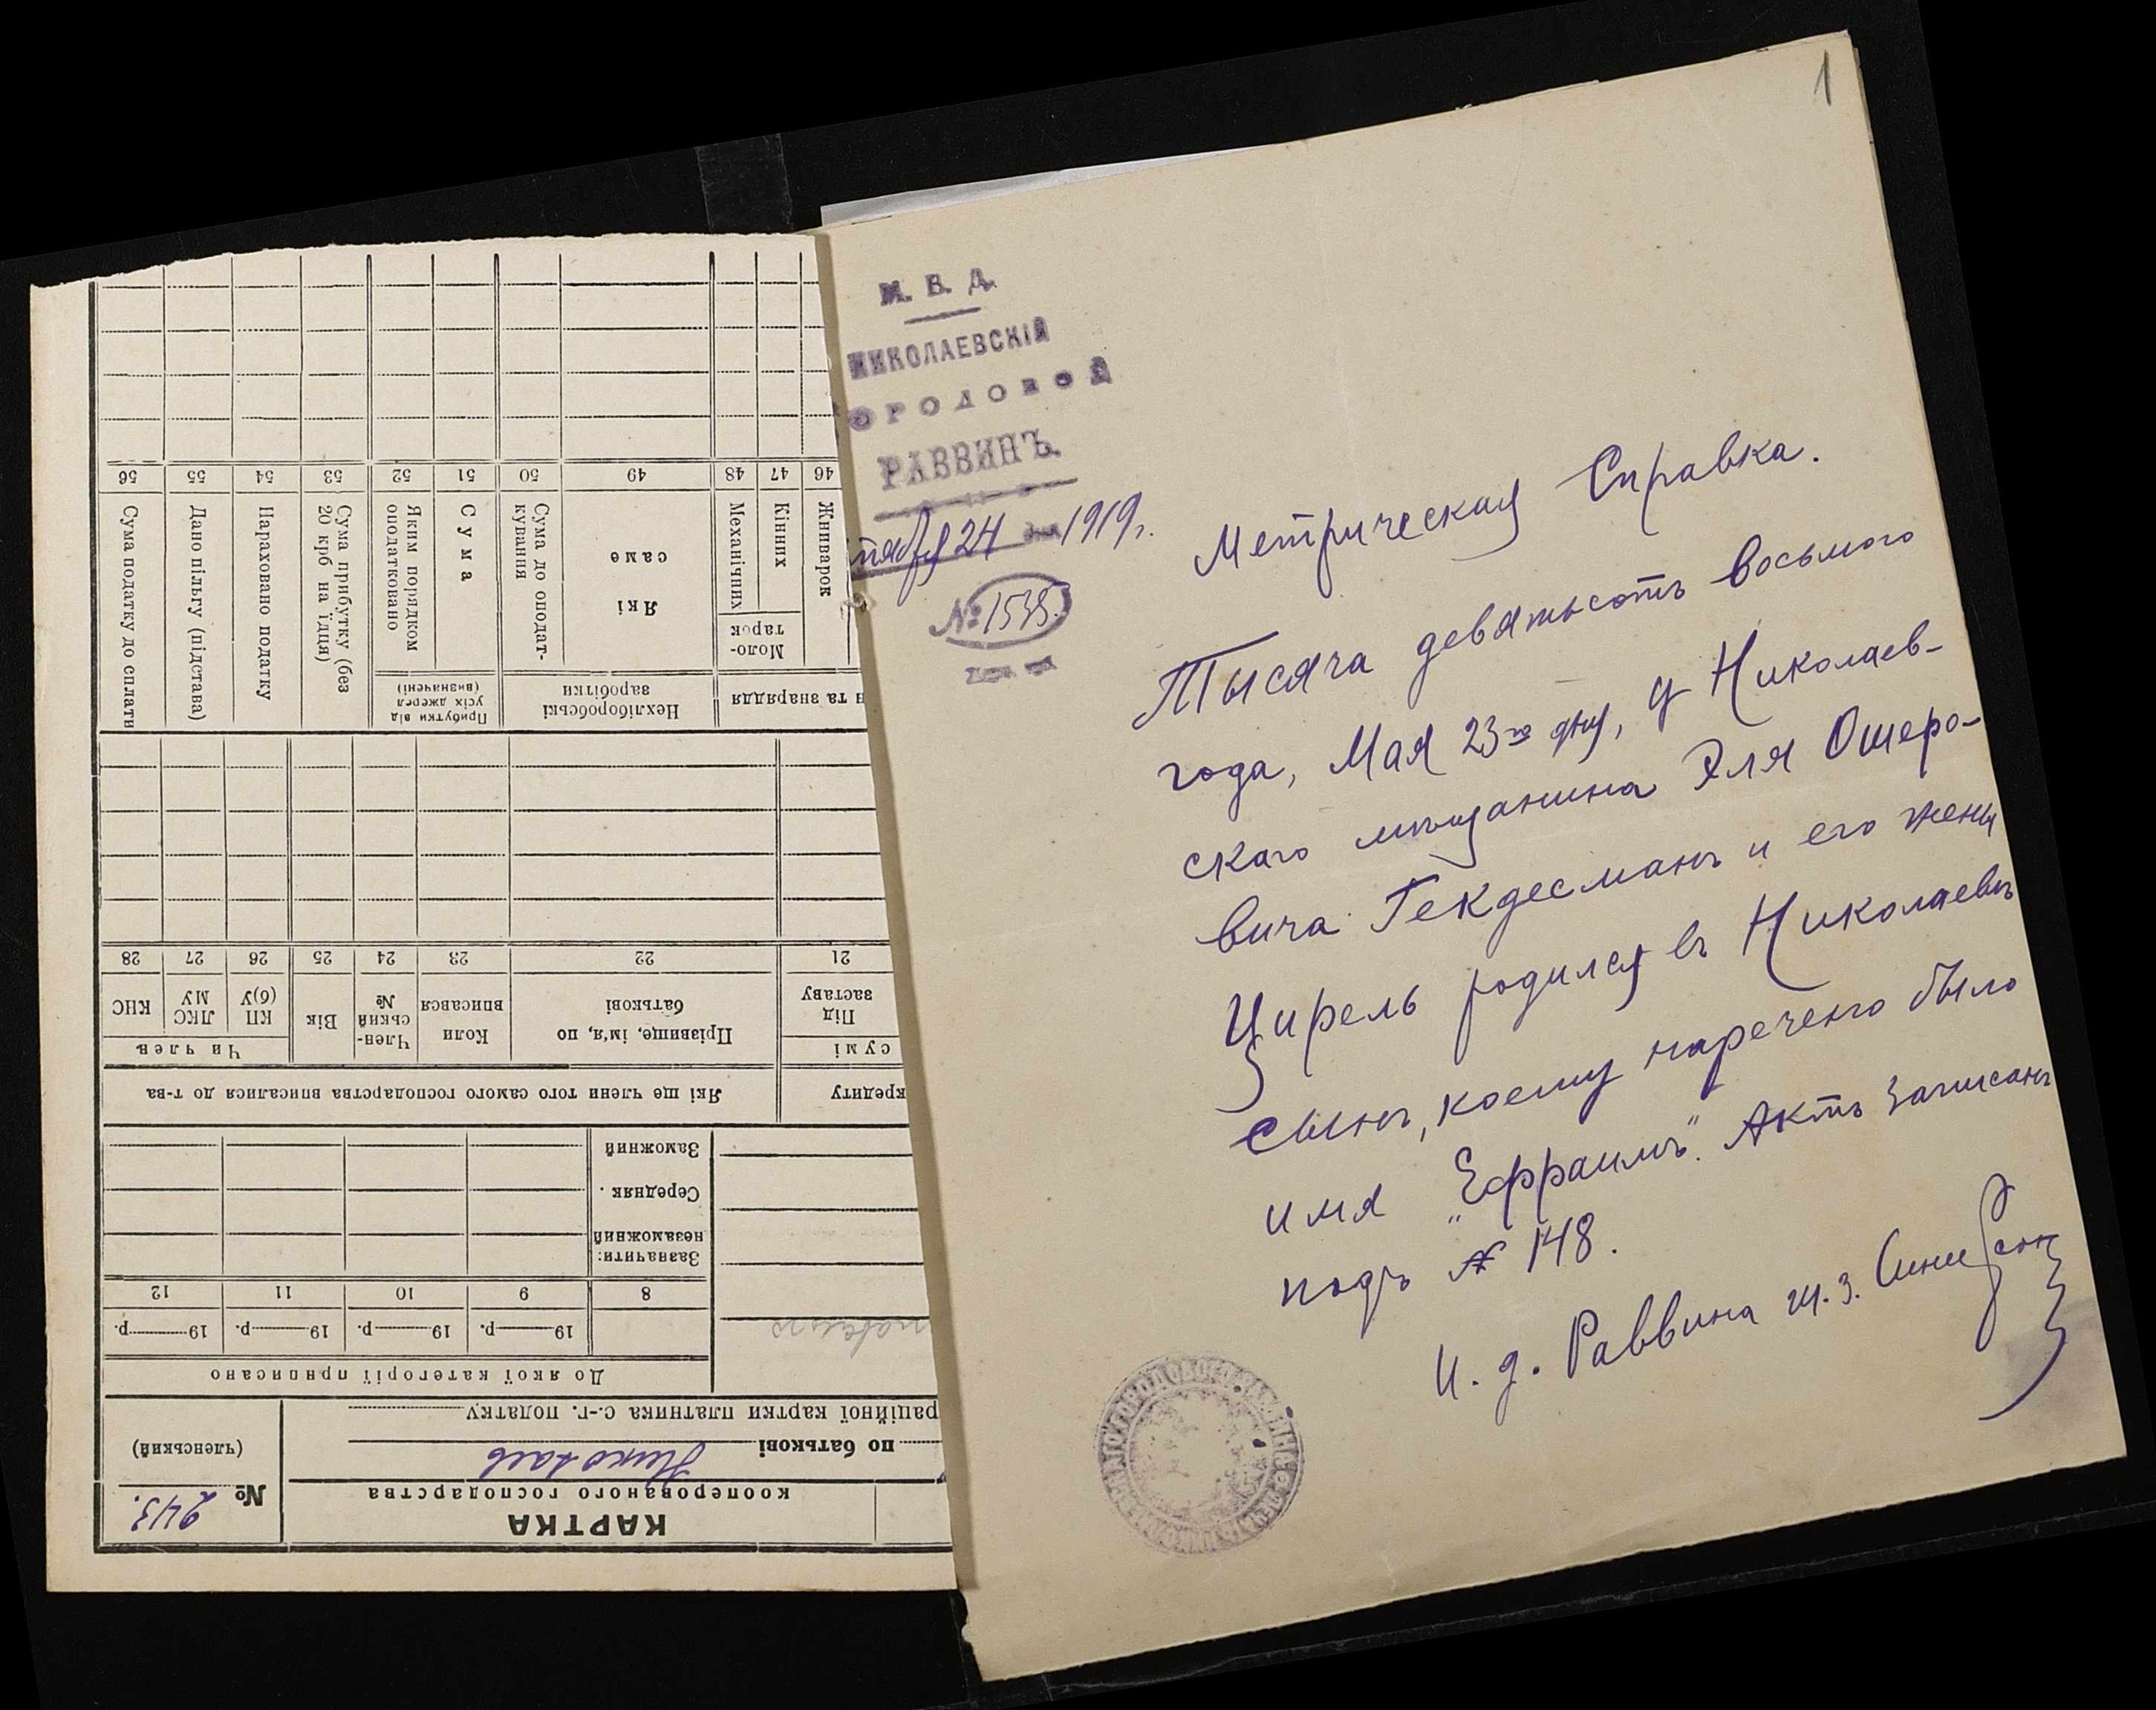 1
М. В. Д.
НИКОЛАЕВСКІЙ
ГОРОДОВОЙ
РАВВИНЪ.
тября 24 дня 1919 г.
№ 1538.
Метрическая Справка.
Тысяча девятьсотъ восьмого
года, Мая 23го дня, у Николаев-
скаго мѣщанина Эля Ошеро-
вича Гекдесманъ и его жены
Цирель родился въ Николаевѣ
сынъ, коему наречено было
имя „Ефраимъ". Актъ записанъ
подъ № 148.
И. д. Раввина М. З.
КАРТКА
кооперованого господарства
№ 243.
(членський)
по батькові Николаев
раційної картки платника с.-г. податку
До якої категорії приписано
19 р. 19 р. 19 р. 19 р.
8 9 10 11 12
Зазначити:
незаможний
Середняк .
Заможний
кредиту
Які ще члени того самого господарства вписалися до т-ва
сумі
Під заставу
Прізвище, ім'я, по батькові
Коли вписався
Член-ський №
Вік
Чи член
КП (б)У
ЛКСМУ
КНС
21 22 23 24 25 26 27 28
н та знаряддя
Нехліборобські заробітки
Прибутки від усіх джерел (визначені)
Жниварок
Моло-тарок
Кінних
Механічних
Які саме
Сума до оподат-кування
Сума
Яким порядком оподатковано
Сума прибутку (без 20 крб на їдця)
Нараховано податку
Дано пільгу (підстава)
Сума податку до сплати
46 47 48 49 50 51 52 53 54 55 56